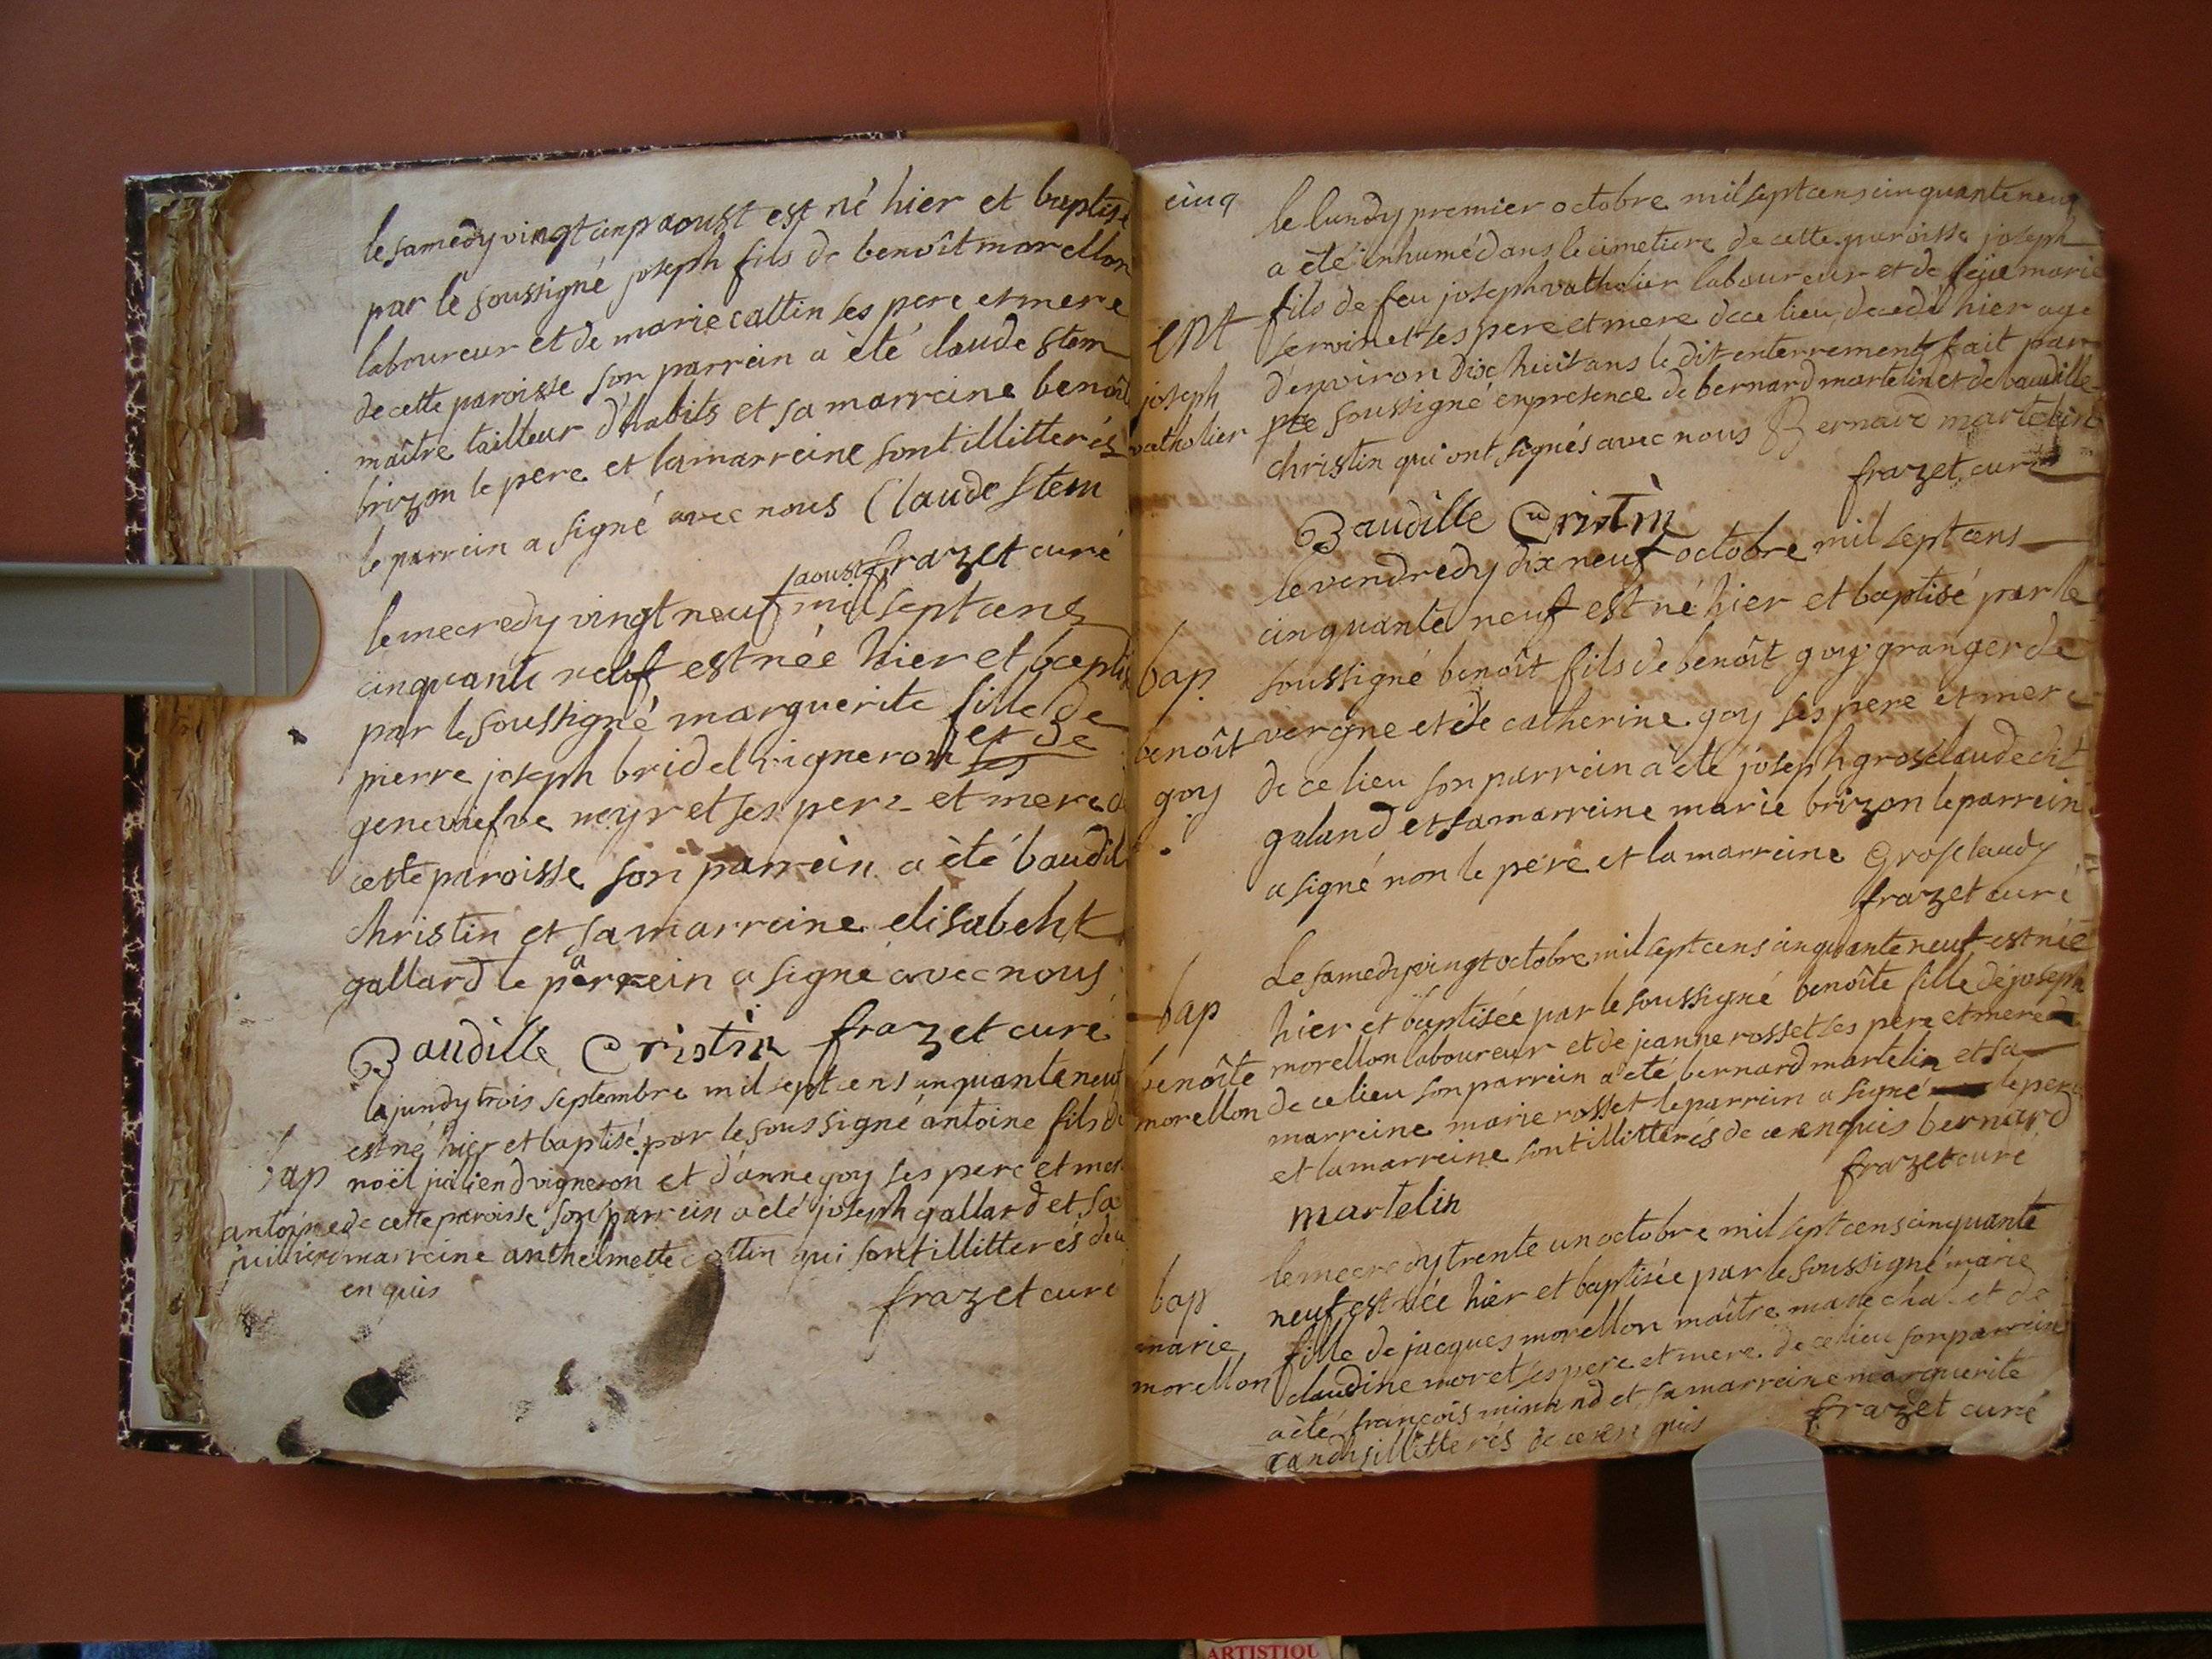 le samedy vingt cinq aoust est né hier et baptisé
par le soussigné joseph fils de benoît morellon
laboureur et de marie cattin ses pere et mere
de cette paroisse son parrein a èté claude stem
maître tailleur d'habits et sa marreine benoît
brizon le pere et la marreine sont illitterés
le parrein a signé avec nous Claude Stem
frazet curé
aoust
le mecredy vingt neuf mil sept cens
cinquante neuf est née hier et baptis
par le soussigné marguerite fille de
pierre joseph bridel vigneron et de
genevief ve neyret ses pere et mere d
cette paroisse son parrein a èté baudil
christin et sa marreine elisabeht
gallard le parrein a signé avec nous
Baudille Cristin frazet curé
le jundy trois septembre mil sept cens cinquante neuf
est né hier et baptisé par le soussigné antoine fils de
bap noël juliend vigneron et d'anne goy ses pere et mer
antoine de cette paroisse son parrein a èté joseph gallard et sa
marreine anthelmette cattin qui sont illitterés de ce
enquis
frazet curé
cinq
le lundy premier octobre mil sept cens cinquante neuf
a èté inhumé dans le cimetiere de cette paroisse joseph
fils de feu joseph vatholier laboureur et de feüe marie
ent servinet ses pere et mere de ce lieu decedé hier age
joseph d'environ dix huit ans le dit enterrement fait par
vatholier soussigné en presence de bernard martelin et de baudille
christin qui ont signés avec nous Bernard martelin
frazet curé
Baudille Cristin
le vendredy dix neuf octobre mil sept cens
cinquante neuf est né hier et baptisé par le
bap soussigné benoît fils de benoît goy granger de
benoît vergne et de catherine goy ses pere et mere
goy de ce lieu son parrein a èté joseph grosclaude dit
galand et sa marreine marie brizon le parrein
a signé non le pere et la marreine Grosclaudy
frazet curé
Le samedy vingt octobre mil sept cens cinquante neuf est née
bap hier et baptisée par le soussigné benoîte fille de joseph
benoîte morellon laboureur et de jeanne rosset ses pere et mere
morellon de ce lieu son parrein a èté bernard martelin et sa
marreine marie rosset le parrein a signé le pere
et la marreine sont illitterés de ce enquis bernard
frazet curé
martelin
le mecredy trente un octobre mil sept cens cinquante
bap neuf est née hier et baptisée par le soussigné marie
marie fille de jacques morellon maître marechal et de
morellon claudine moret ses pere et mere de ce lieu son parrein
a èté françois minand et sa marreine marguerite
illitterés de ce enquis frazet curé
ARTISTIQU